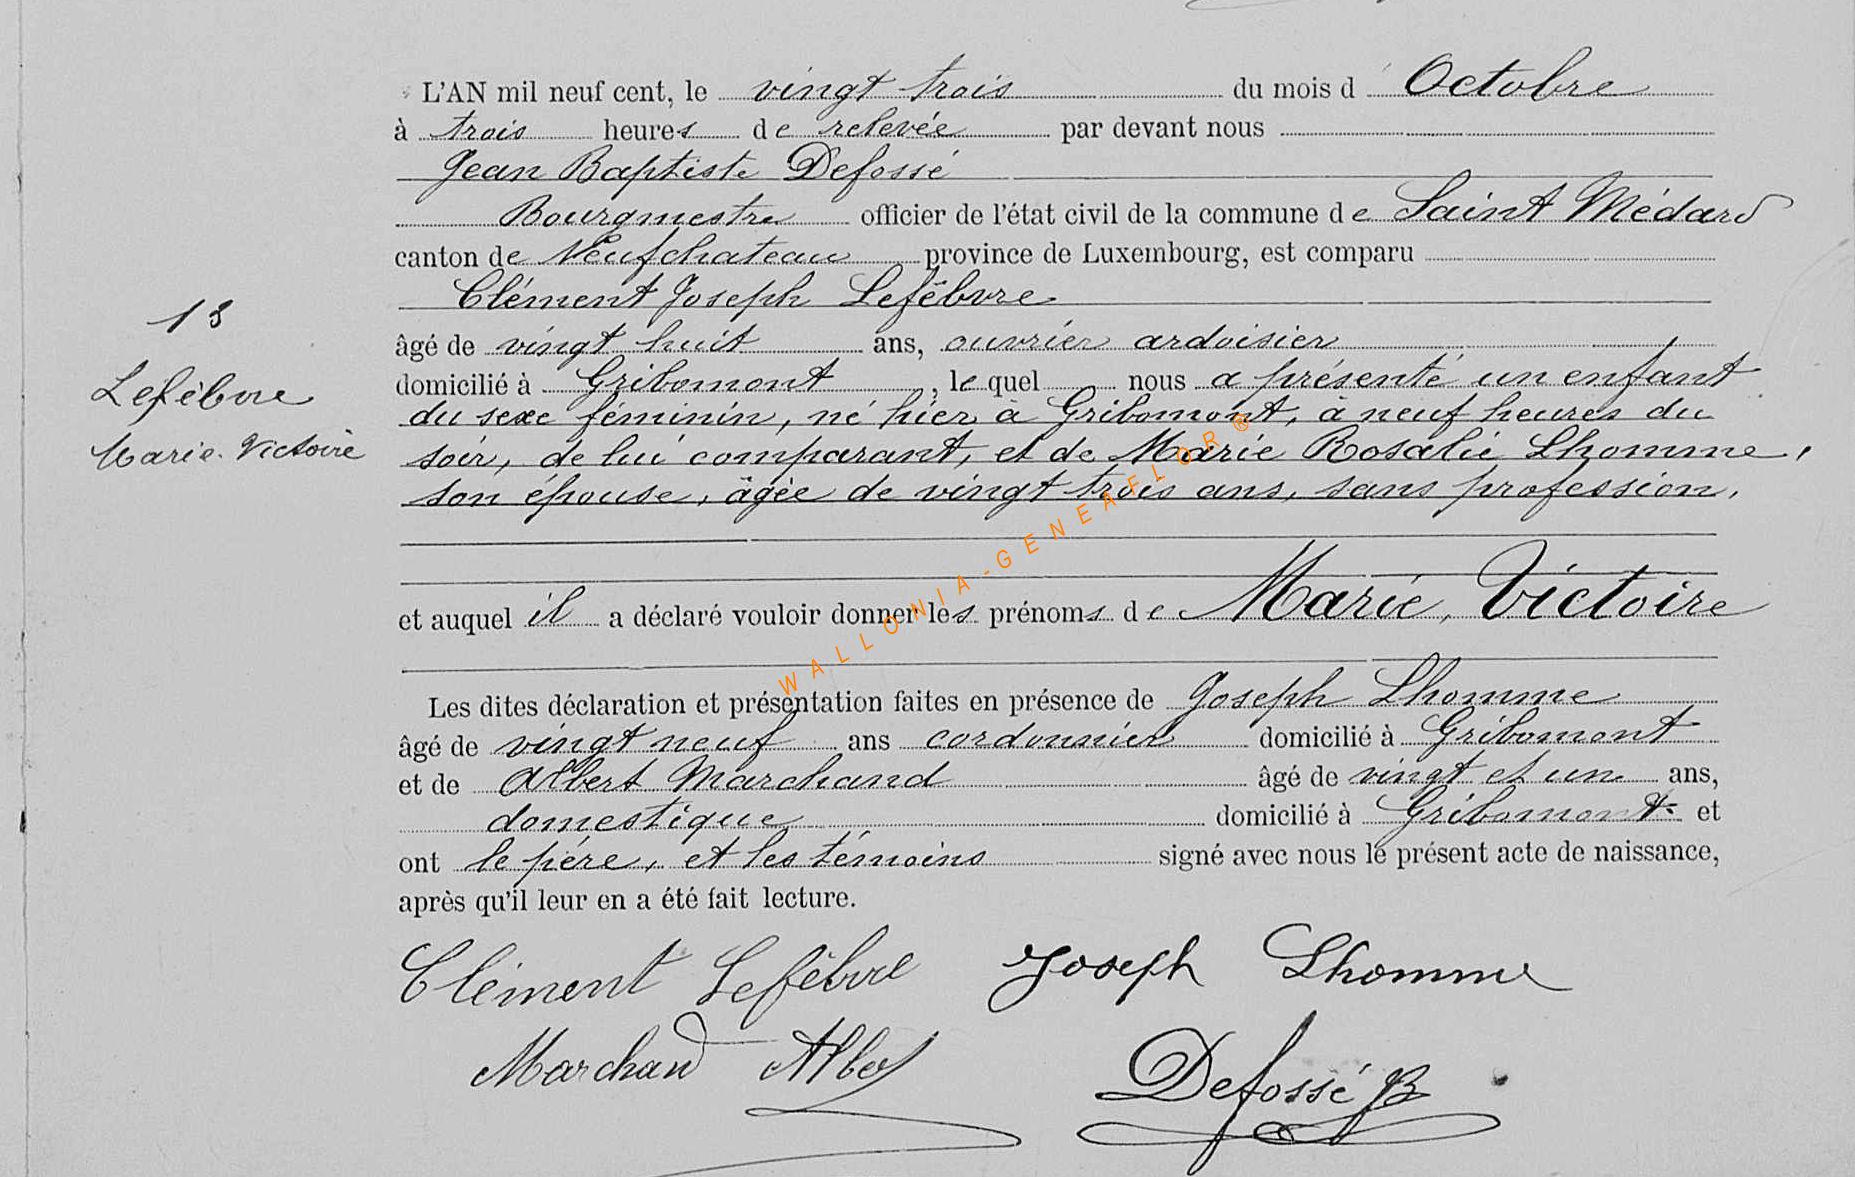 L'AN mil neuf cent, le vingt trois du mois d Octobre
à trois heures de relevée par devant nous
Jean Baptiste Defossé
Bourgmestre officier de l'état civil de la commune de Saint Médard
canton de Neufchateau province de Luxembourg, est comparu
Clément Joseph Lefèbvre
13
âgé de vingt huit ans, ouvrier ardoisier
Lefèbvre
domicilié à Gribomont, le quel nous a présenté un enfant
du sexe féminin, né hier à Gribomont, à neuf heures du
Marie-Victoire
soir, de lui comparant, et de Marie Rosalie Lhomme,
son épouse, âgée de vingt trois ans, sans profession,
et auquel il a déclaré vouloir donner les prénoms de Marie, Victoire
WALLONIA-GENEAFLOR®
Les dites déclaration et présentation faites en présence de Joseph Lhomme
âgé de vingt neuf ans cordonnier domicilié à Gribomont
et de Albert Marchand âgé de vingt et un ans,
domestique domicilié à Gribomont et
ont le père, et les témoins signé avec nous le présent acte de naissance,
après qu'il leur en a été fait lecture.
Clément Lefèbvre Joseph Lhomme
Marchand Albert Defossé JB